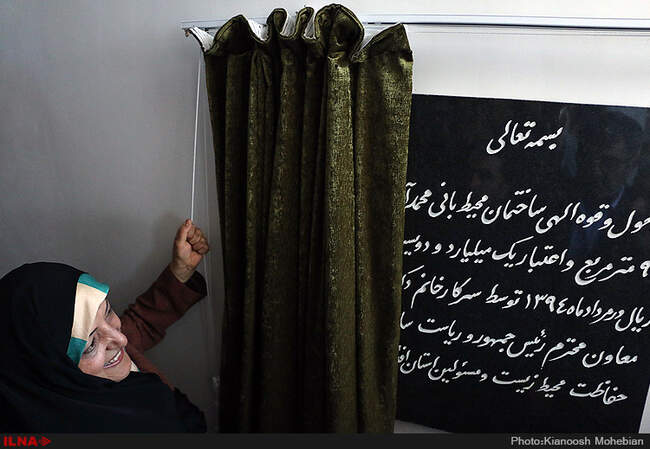 بسمه تعالی
حول و قوه الهی ساختمان محیط بانی محمد
متر مربع و اعتبار یک میلیارد و
ریال در مرداد ماه ۱۳۹۴ توسط سرکار خانم
معاون محترم رئیس جمهور و ریاست
حفاظت محیط زیست و مسئولین استان
ILNA
Photo:Kianoosh Mohebian